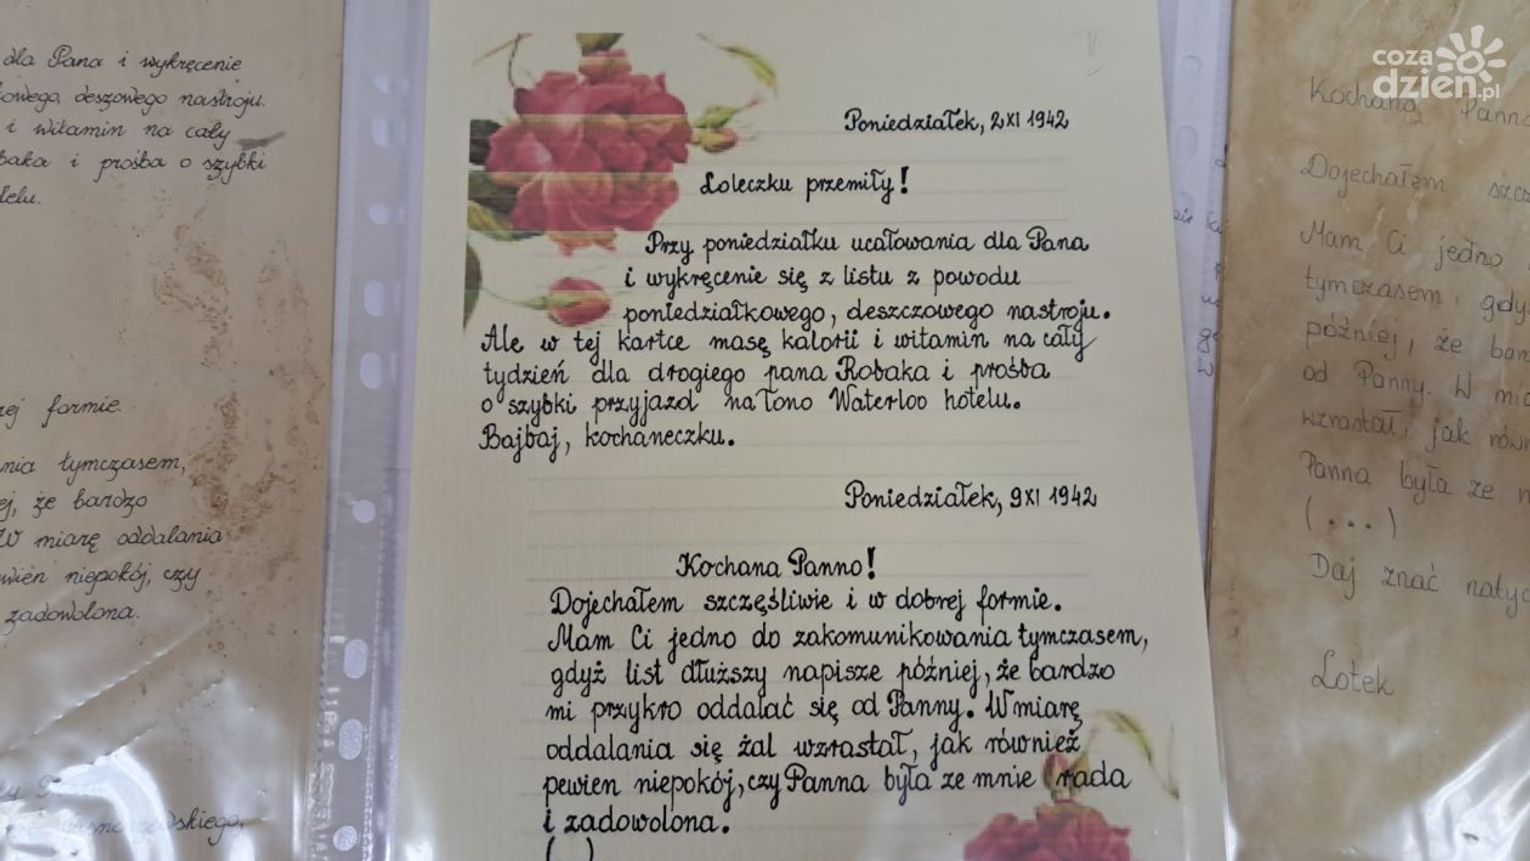 dla Pana i wykręcenie
owego, deszowego nastroju.
i witamin na cały
baka i prośba o szybki
telu.
ej formie.
nia tymczasem,
ej, że bardzo
W miarę oddalania
ewien niepokój, czy
zadowolona.
Poniedziałek, 2 XI 1942
Loleczku przemiły!
Przy poniedziałku ucałowania dla Pana
i wykręcenie się z listu z powodu
poniedziałkowego, deszczowego nastroju.
Ale w tej kartce masę kalorii i witamin na cały
tydzień dla drogiego pana Robaka i prośba
o szybki przyjazd na łono Waterloo hotelu.
Bajbaj, kochaneczku.
Poniedziałek, 9 XI 1942
Kochana Panno!
Dojechałem szczęśliwie i w dobrej formie.
Mam Ci jedno do zakomunikowania tymczasem,
gdyż list dłuższy napisze później, że bardzo
mi przykro oddalać się od Panny. W miarę
oddalania się żal wzrastał, jak również
pewien niepokój, czy Panna była ze mnie rada
i zadowolona.
( )
coza
dzien.pl
Kochana Panno
Dojechałem szczę
Mam Ci jedno
tymczasem, gdy
później, że bar
od Panny. W mia
wzrastał, jak równ
Panna była ze m
(...)
Daj znać natyc
Lolek